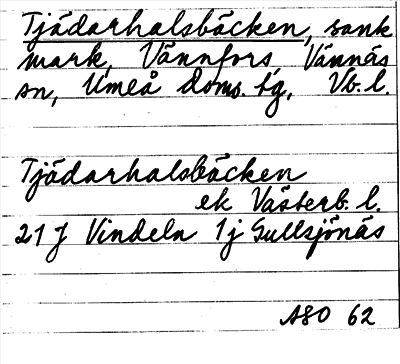 Tjädarhalsbäcken, sank
mark, Vännfors, Vännäs
sn, Umeå doms. tg, Vb. l.
Tjädarhalsbäcken
ek Västerb. l.
21 J Vindeln 1j Gullsjönäs
ASO 62